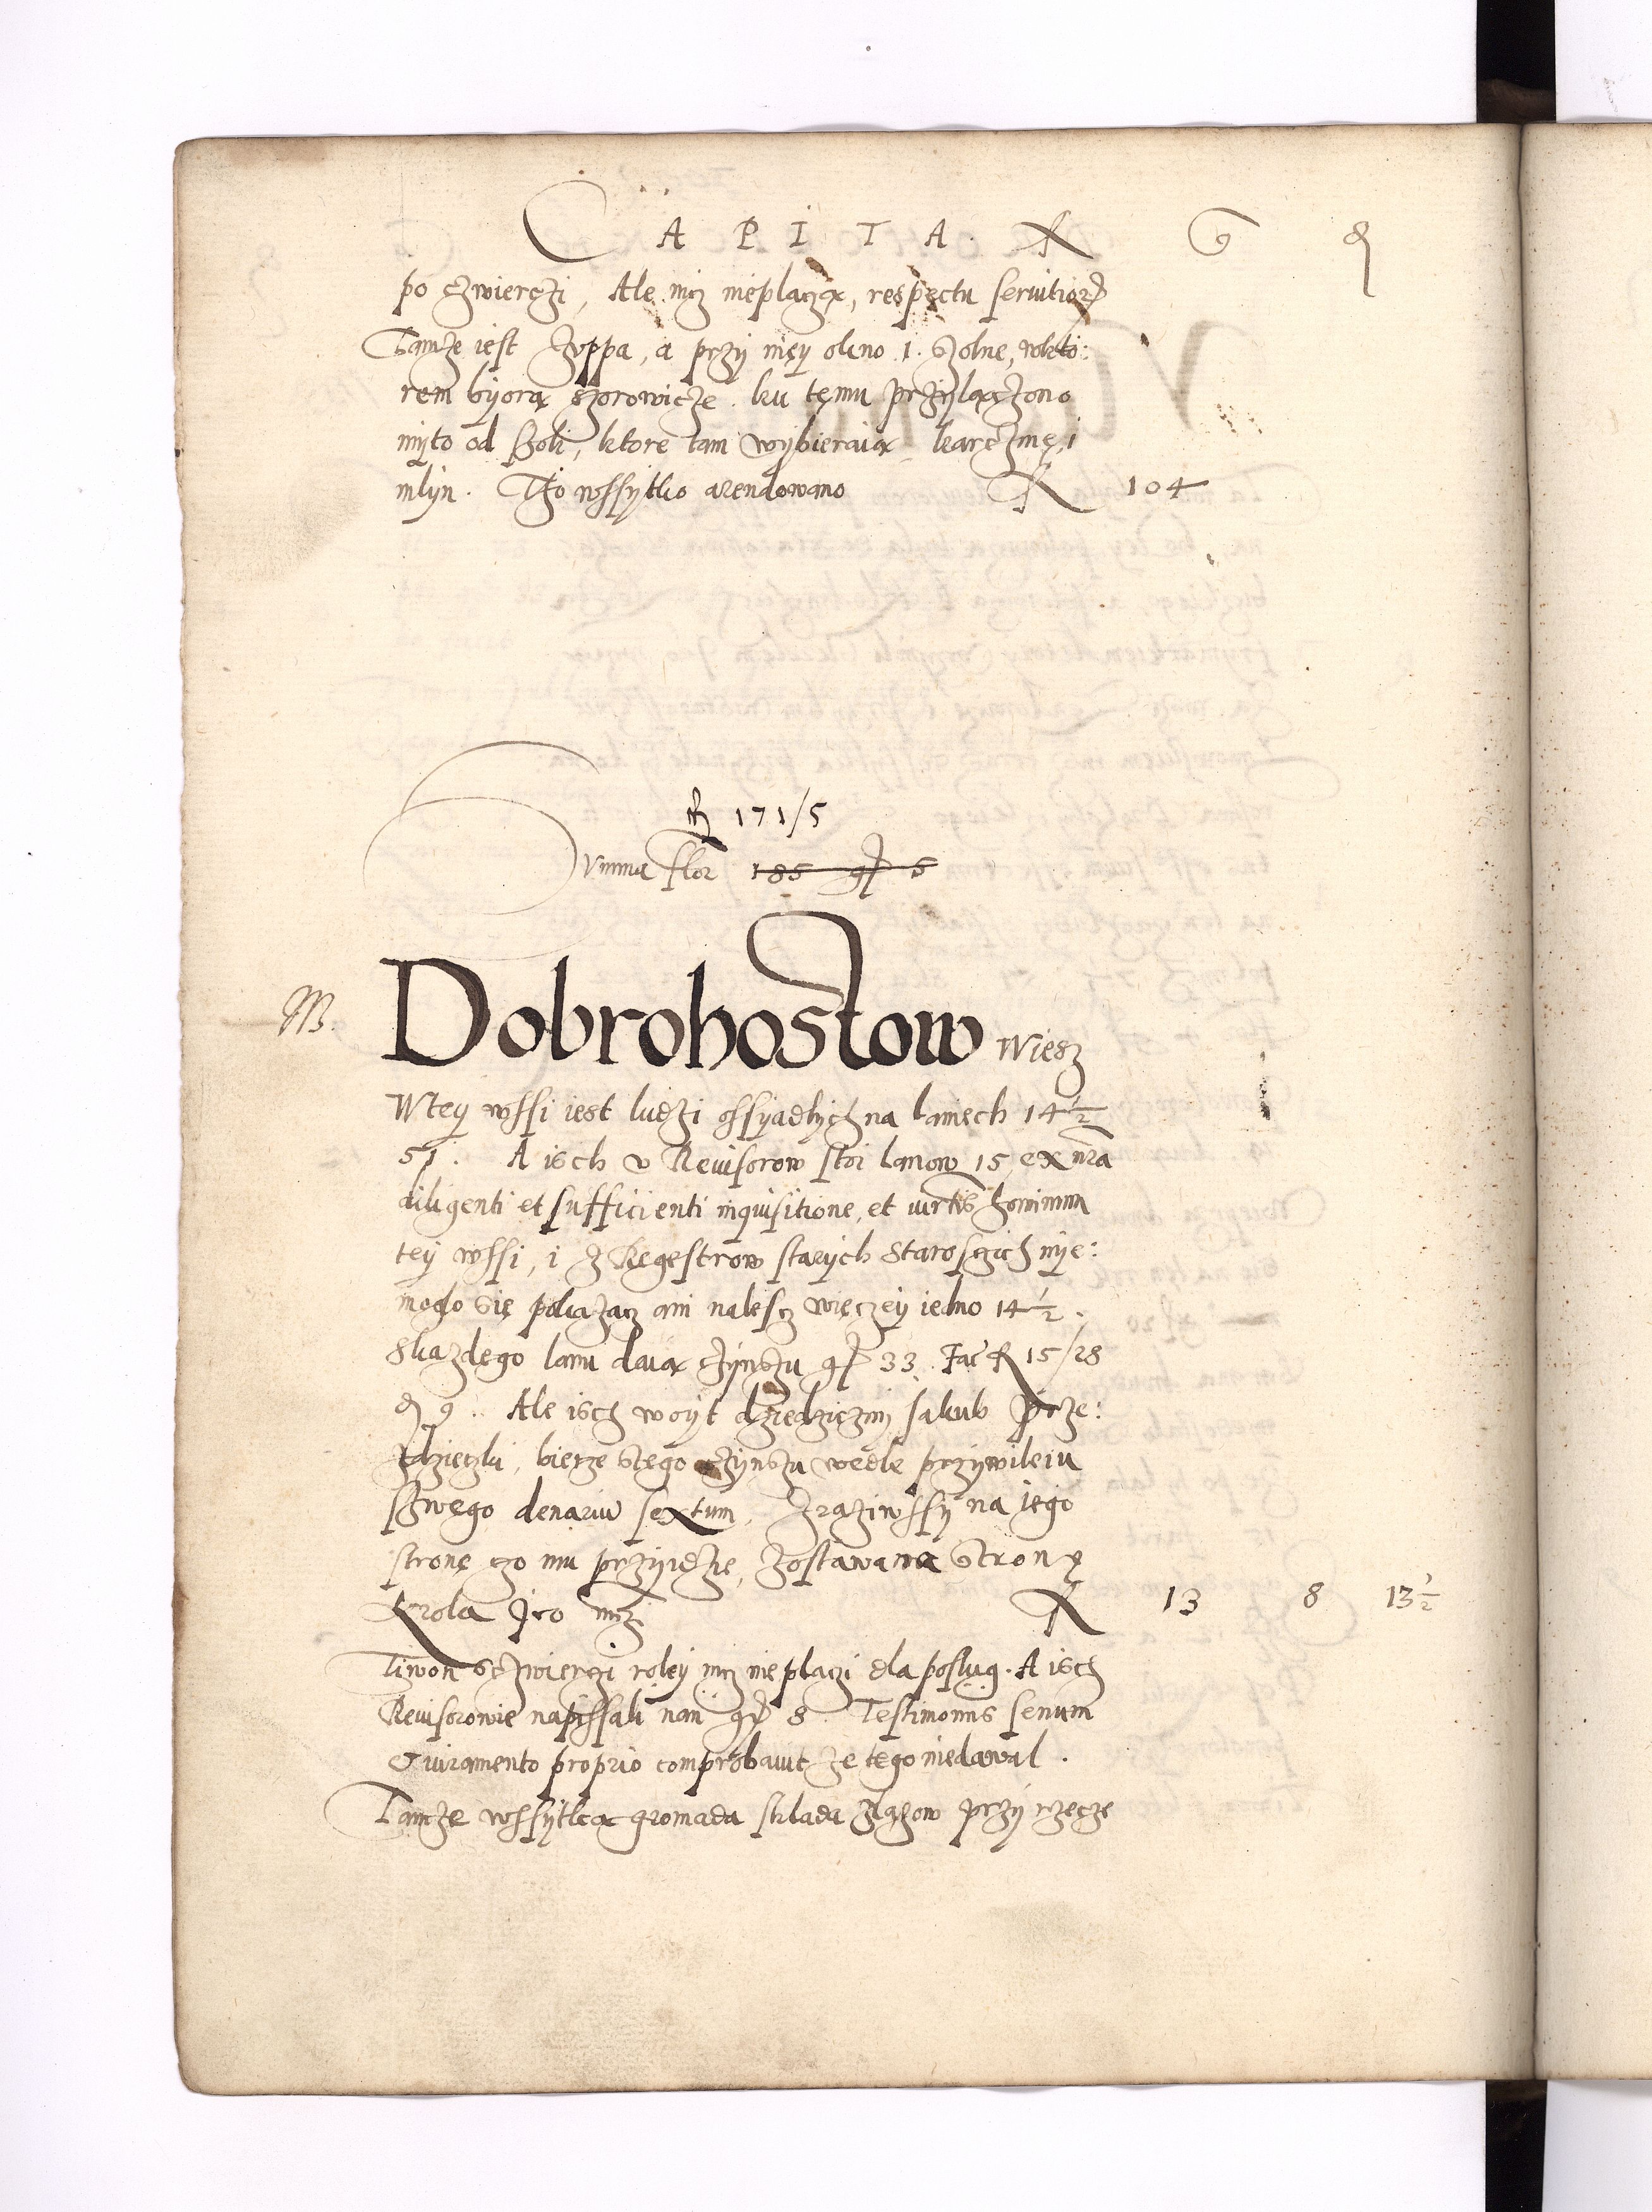 CAPITA. R G ₰
po czwierczi, Ale nicz nieplaczą, respectu seruitior
Tamże iest Zvppa, a przy nięy okno 1. Solne, wokto:
rem byorą szorowicze. ku tęmu przylączono
myto od Szoli, ktore tam wybieraią karczmę i
mlyn. To wssytko arendowano R 104
R 171/5
Summa flor 185 gr 5
M. Dobrohostow Wiesz
Wtey wssi iest ludzi ossyadlych na laniech 14 1/2
51. A isch v Reuisorow stoi lanow 15, ex nra
diligenti et sufficienti inquisitione, et iurtis hominum
tey wssi, i z Regestrow starych Starosczich nye:
moglo się pokazacz ani nalescz więczey iedno 14 1/2.
Skazdęgo lanu daią czynszu gr 33. Fac R 15/28
₰ 9. Ale isch woyt dziedziczny Jakub Prze:
zdzieczki, bierze stego czynszu wedle przywileiu
Szwęgo denariu sextum, Zraziwssy na iego
stronę czo mu przyidzie, zostawa na Stronę
Krola Jeo mczi R 13 8 13 1/2
Tiwon Sczwierczi rolęy nicz nie placzi dla poslug. A isch
Reuisorowie napissali nan gr 8. Testimoniis senum
& iuramento proprio comprobauit ze tego niedawal.
Tamze wssytka gromada sklada zlazow przy rzecze